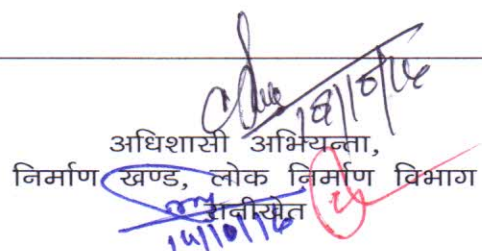 18/10/16
अधिशासी अभियन्ता,
निर्माण खण्ड, लोक निर्माण विभाग
रानीखेत